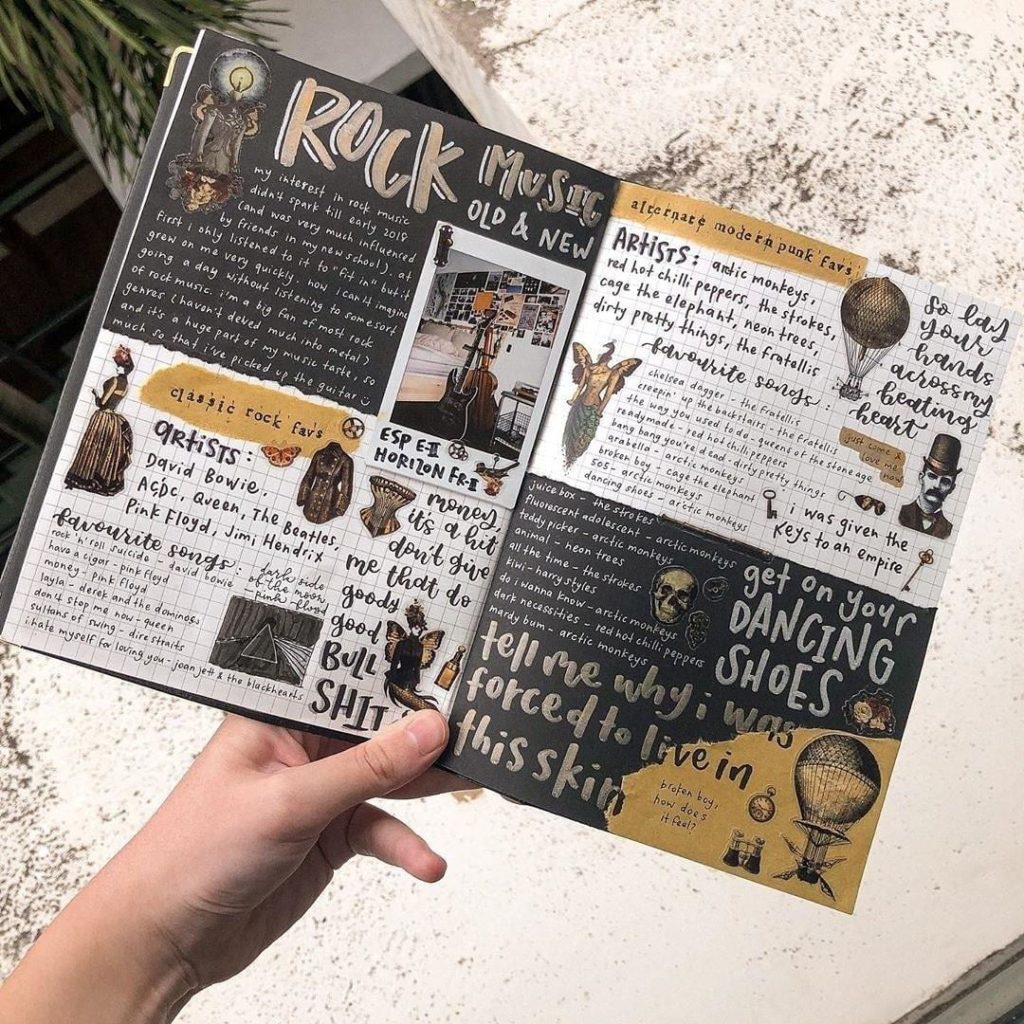 ROCK MUSIC
OLD & NEW
my interest in rock music
didn't spark till early 2018
(and was very much influenced
by friends in my new school). at
first i only listened to it to "fit in" but it
grew on me very quickly. now i can't imagine
going a day without listening to some sort
of rock music. i'm a big fan of most rock
genres (haven't delved much into metal)
and it's a huge part of my music taste, so
much so that i've picked up the guitar
classic rock favs
ARTISTS:
David Bowie,
AC/DC, Queen, The Beatles,
Pink Floyd, Jimi Hendrix
favourite songs:
rock 'n' roll suicide - david bowie
have a cigar - pink floyd
money - pink floyd
layla - derek and the dominos
don't stop me now - queen
sultans of swing - dire straits
i hate myself for loving you - joan jett & the blackhearts
dark side
of the moon
- pink floyd
ESP E-II
HORIZON FR-II
money,
it's a hit
don't give
me that do
goody
good
BULL
SHIT
alternate modern punk favs
ARTISTS: arctic monkeys,
red hot chilli peppers, the strokes,
cage the elephant, neon trees,
dirty pretty things, the fratellis
favourite songs:
chelsea dagger - the fratellis
creepin' up the backstairs - the fratellis
the way you used to do - queens of the stone age
readymade - red hot chili peppers
bang bang you're dead - dirty pretty things
arabella - arctic monkeys
broken boy - cage the elephant
505 - arctic monkeys
dancing shoes - arctic monkeys
juice box - the strokes
fluorescent adolescent - arctic monkeys
teddy picker - arctic monkeys
animal - neon trees
all the time - the strokes
kiwi - harry styles
do i wanna know - arctic monkeys
dark necessities - red hot chilli peppers
mardy bum - arctic monkeys
so lay
your
hands
across my
beating
heart
just come &
love me
now
i was given the
keys to an empire
get on your
DANCING
SHOES
tell me why i was
forced to live in
this skin
broken boy,
how does
it feel?